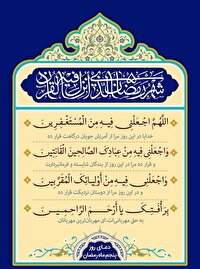 شهر رمضان الذي انزل فيه القرآن
اَللّهُمَّ اجْعَلْني فيهِ مِنَ الْمُسْتَغْفِرينَ
خدایا در این روز مرا از آمرزش جویان درگاهت قرار ده
وَاجْعَلْني فيهِ مِنْ عِبادِكَ الصّالِحينَ الْقانِتينَ
و قرار ده مرا در این روز از بندگان شایسته و فرمانبردارت
وَاجْعَلْني فيهِ مِنْ أَوْلِيائِكَ الْمُقَرَّبينَ
و قرار ده مرا در این روز از دوستان نزدیکت قرار ده
بِرَأْفَتِكَ يا أَرْحَمَ الرّاحِمينَ
به حق مهربانی‌ات، ای مهربان‌ترین مهربانان
دعـای روز
پنجم ماه رمضان